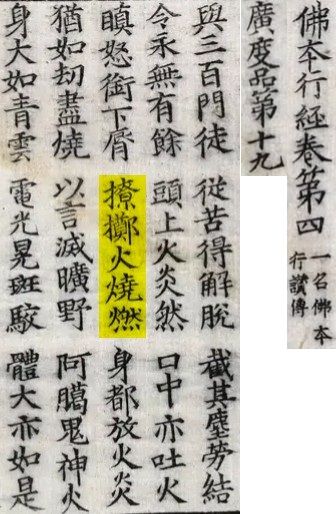 佛本行經卷第四 一名佛本行讚傳
廣度品第十九
與三百門徒 從苦得解脫 截其塵勞結
令永無有餘 頭上火炎然 口中亦吐火
瞋怒銜下脣 撩擲火燒燃 身都放火炎
猶如劫盡燒 以言滅曠野 阿臈鬼神火
身大如青雲 電光晃斑駮 體大亦如是